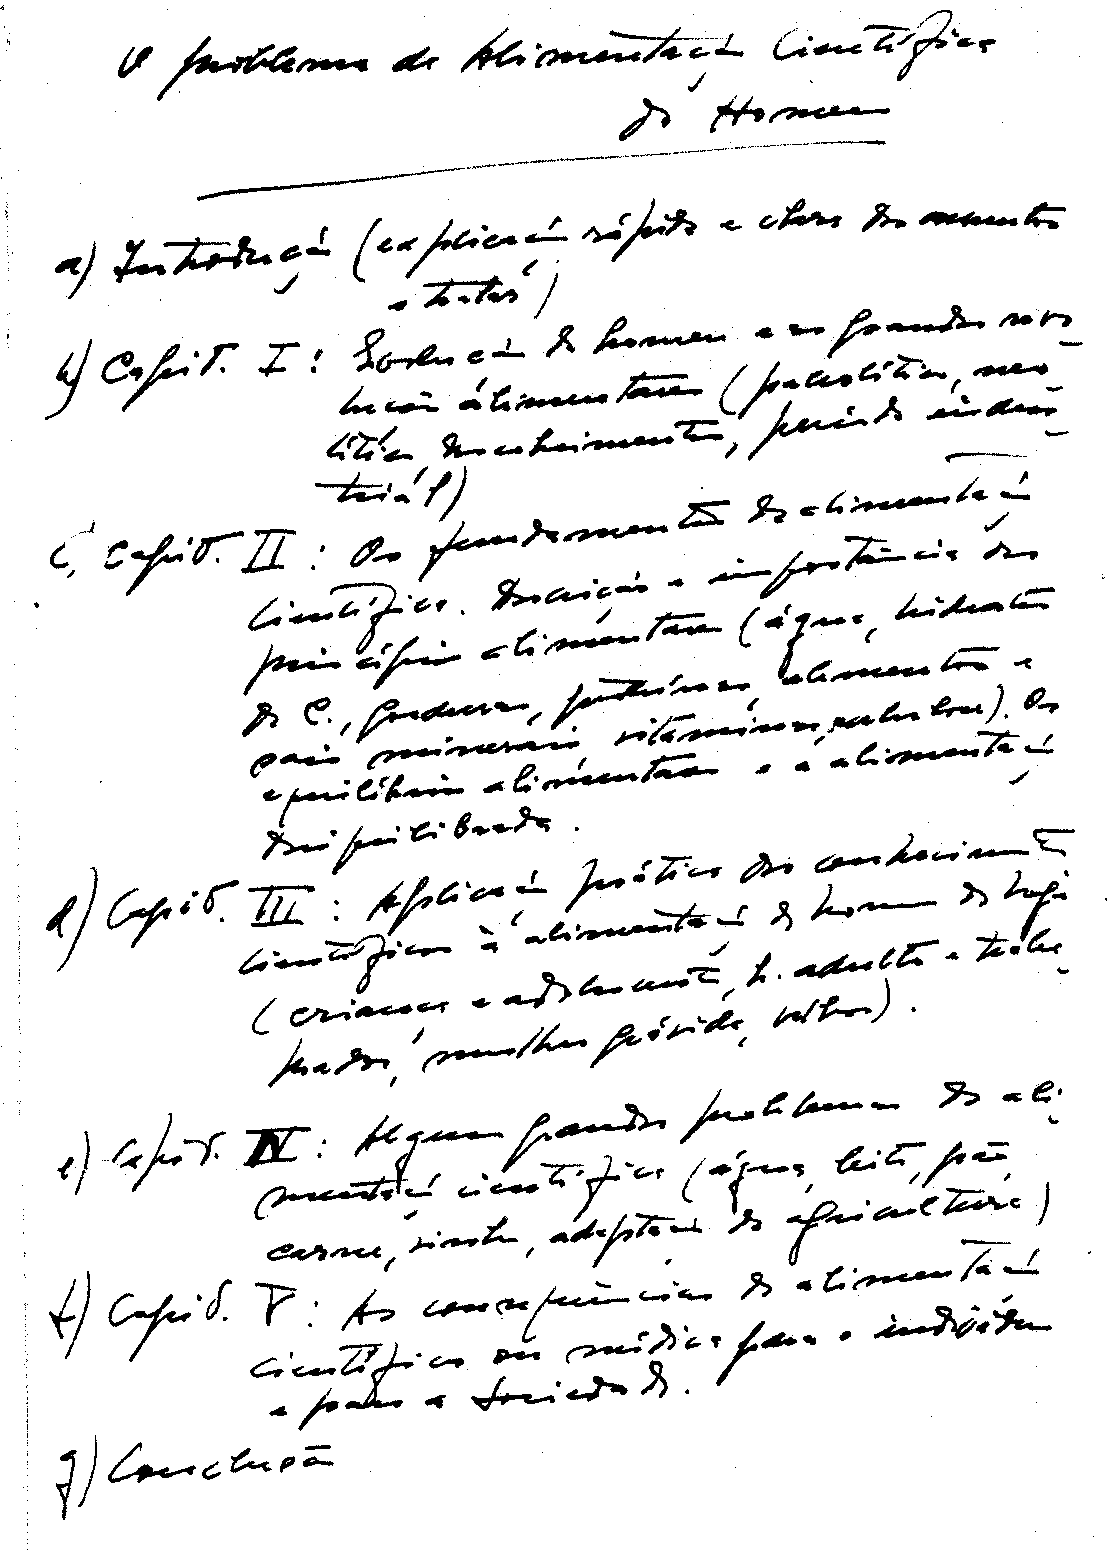 O problema da Alimentação Científica
do Homem
a) Introdução (explicação rápida e clara do assunto
a tratar)
b) Capít. I: Evolução do homem e as grandes revo-
luções alimentares (paleolítica, neo-
lítica, descobrimentos, período indus-
trial)
c) Capít. II: Os fundamentos da alimentação
científica. Descrição e importância dos
princípios alimentares (água, hidratos
de C., gorduras, proteínas, elementos e
sais minerais, vitaminas, ). Os
equilíbrios alimentares e a alimentação
desiquilibrada.
d) Capít. III: Aplicação prática dos conhecimentos
científicos à alimentação do homem de hoje
(crianças e adolescentes, h. adulto e traba-
lhador, mulher grávida, velhos).
e) Capít. IV: Alguns grandes problemas da ali-
mentação científica (água, leite, pão,
carne, vinho, adaptação da agricultura)
f) Capít. V: As consequências da alimentação
científica ou médica para o indivíduo
e para a Sociedade.
g) Conclusão